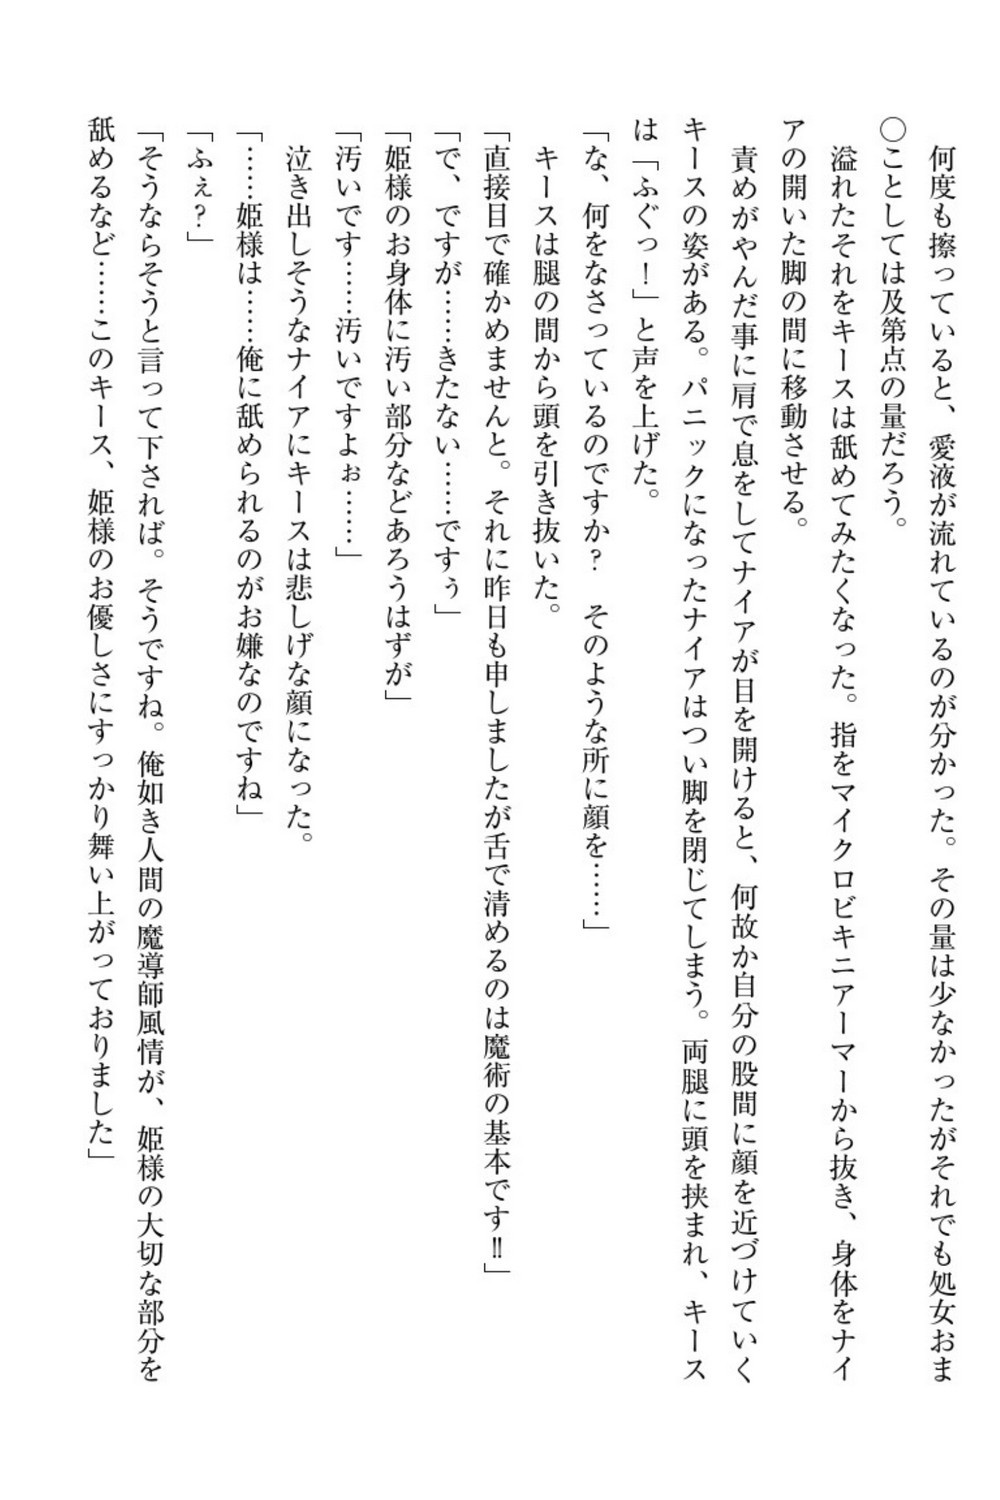 何度も擦っていると、愛液が流れているのが分かった。その量は少なかったがそれでも処女おま
〇ことしては及第点の量だろう。
溢れたそれをキースは舐めてみたくなった。指をマイクロビキニアーマーから抜き、身体をナイ
アの開いた脚の間に移動させる。
責めがやんだ事に肩で息をしてナイアが目を開けると、何故か自分の股間に顔を近づけていく
キースの姿がある。パニックになったナイアはつい脚を閉じてしまう。両腿に頭を挟まれ、キース
は「ふぐっ！」と声を上げた。
「な、何をなさっているのですか？　そのような所に顔を……」
キースは腿の間から頭を引き抜いた。
「直接目で確かめませんと。それに昨日も申しましたが舌で清めるのは魔術の基本です‼」
「で、ですが……きたない……ですぅ」
「姫様のお身体に汚い部分などあろうはずが」
「汚いです……汚いですよぉ……」
泣き出しそうなナイアにキースは悲しげな顔になった。
「……姫様は……俺に舐められるのがお嫌なのですね」
「ふぇ？」
「そうならそうと言って下されば。そうですね。俺如き人間の魔導師風情が、姫様の大切な部分を
舐めるなど……このキース、姫様のお優しさにすっかり舞い上がっておりました」